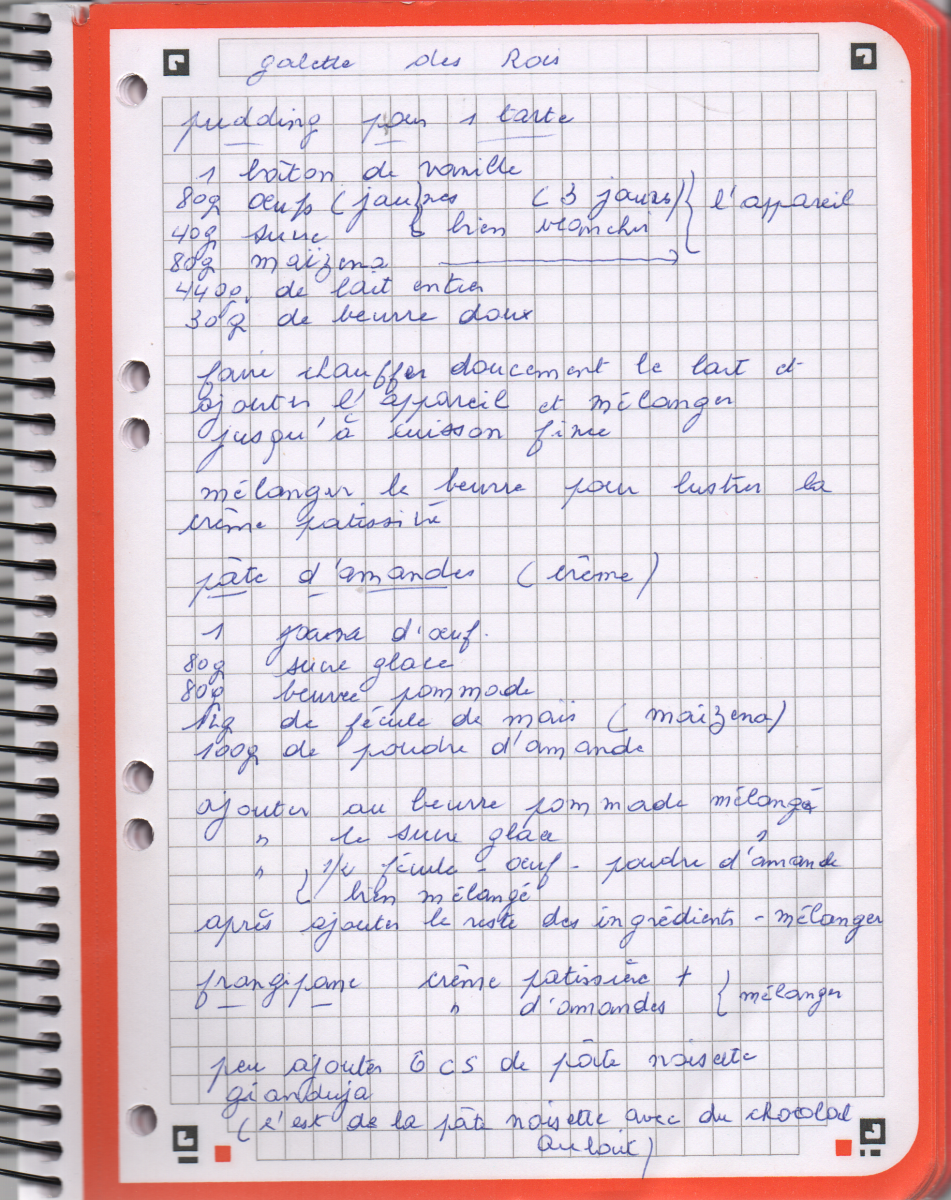 galette des Rois
pudding pour 1 tarte
1 bâton de vanille
80g œufs (jaunes (3 jaunes) } l'appareil
40g sucre bien blanchir
80g maïzena
440g de lait entier
30g de beurre doux
faire chauffer doucement le lait et
ajouter l'appareil et mélanger
jusqu'à cuisson fine
mélanger le beurre pour lustrer la
crème patissière
pâte d'amandes (crème)
1 jaune d'œuf.
80g sucre glace
80g beurre pommade
12g de fécule de maïs (maïzena)
100g de poudre d'amande
ajouter au beurre pommade mélangé
" le sucre glace "
" { 1/2 fécule - œuf - poudre d'amande
bien mélangé
après ajouter le reste des ingrédients - mélanger
frangipane crème patissière + } mélanger
" d'amandes
peu ajouter 6 cs de pâte noisette
gianduja
(c'est de la pâte noisette avec du chocolat
au lait)